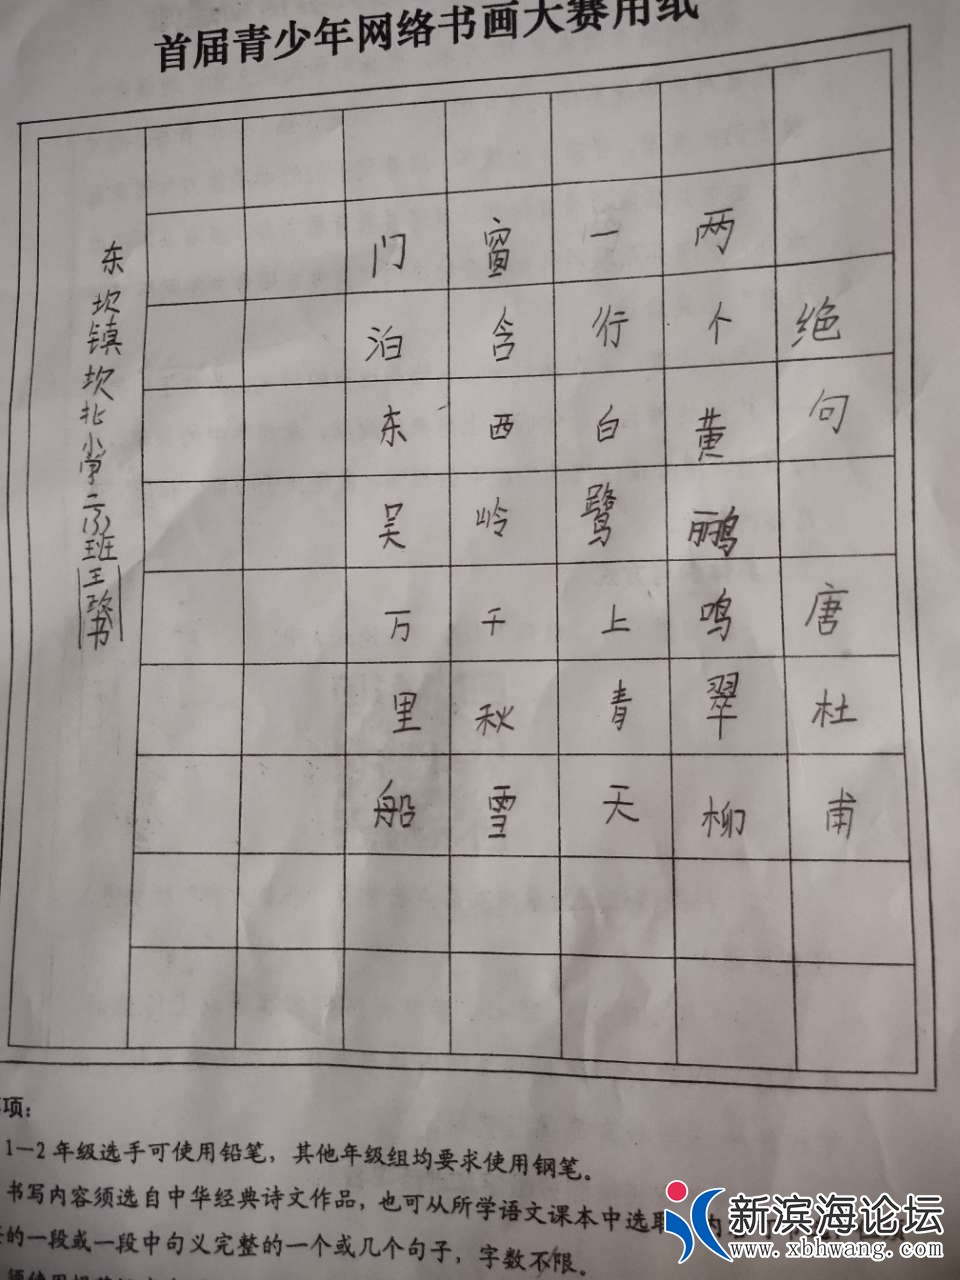 首届青少年网络书画大赛用纸
绝句 唐 杜甫
两个黄鹂鸣翠柳
一行白鹭上青天
窗含西岭千秋雪
门泊东吴万里船
东坎镇坎北小学二(3)班王 书
项：
1—2年级选手可使用铅笔，其他年级组均要求使用钢笔。
书写内容须选自中华经典诗文作品，也可从所学语文课本中选取
的一段或一段中句义完整的一个或几个句子，字数不限。
新滨海论坛
www.xbhwang.com